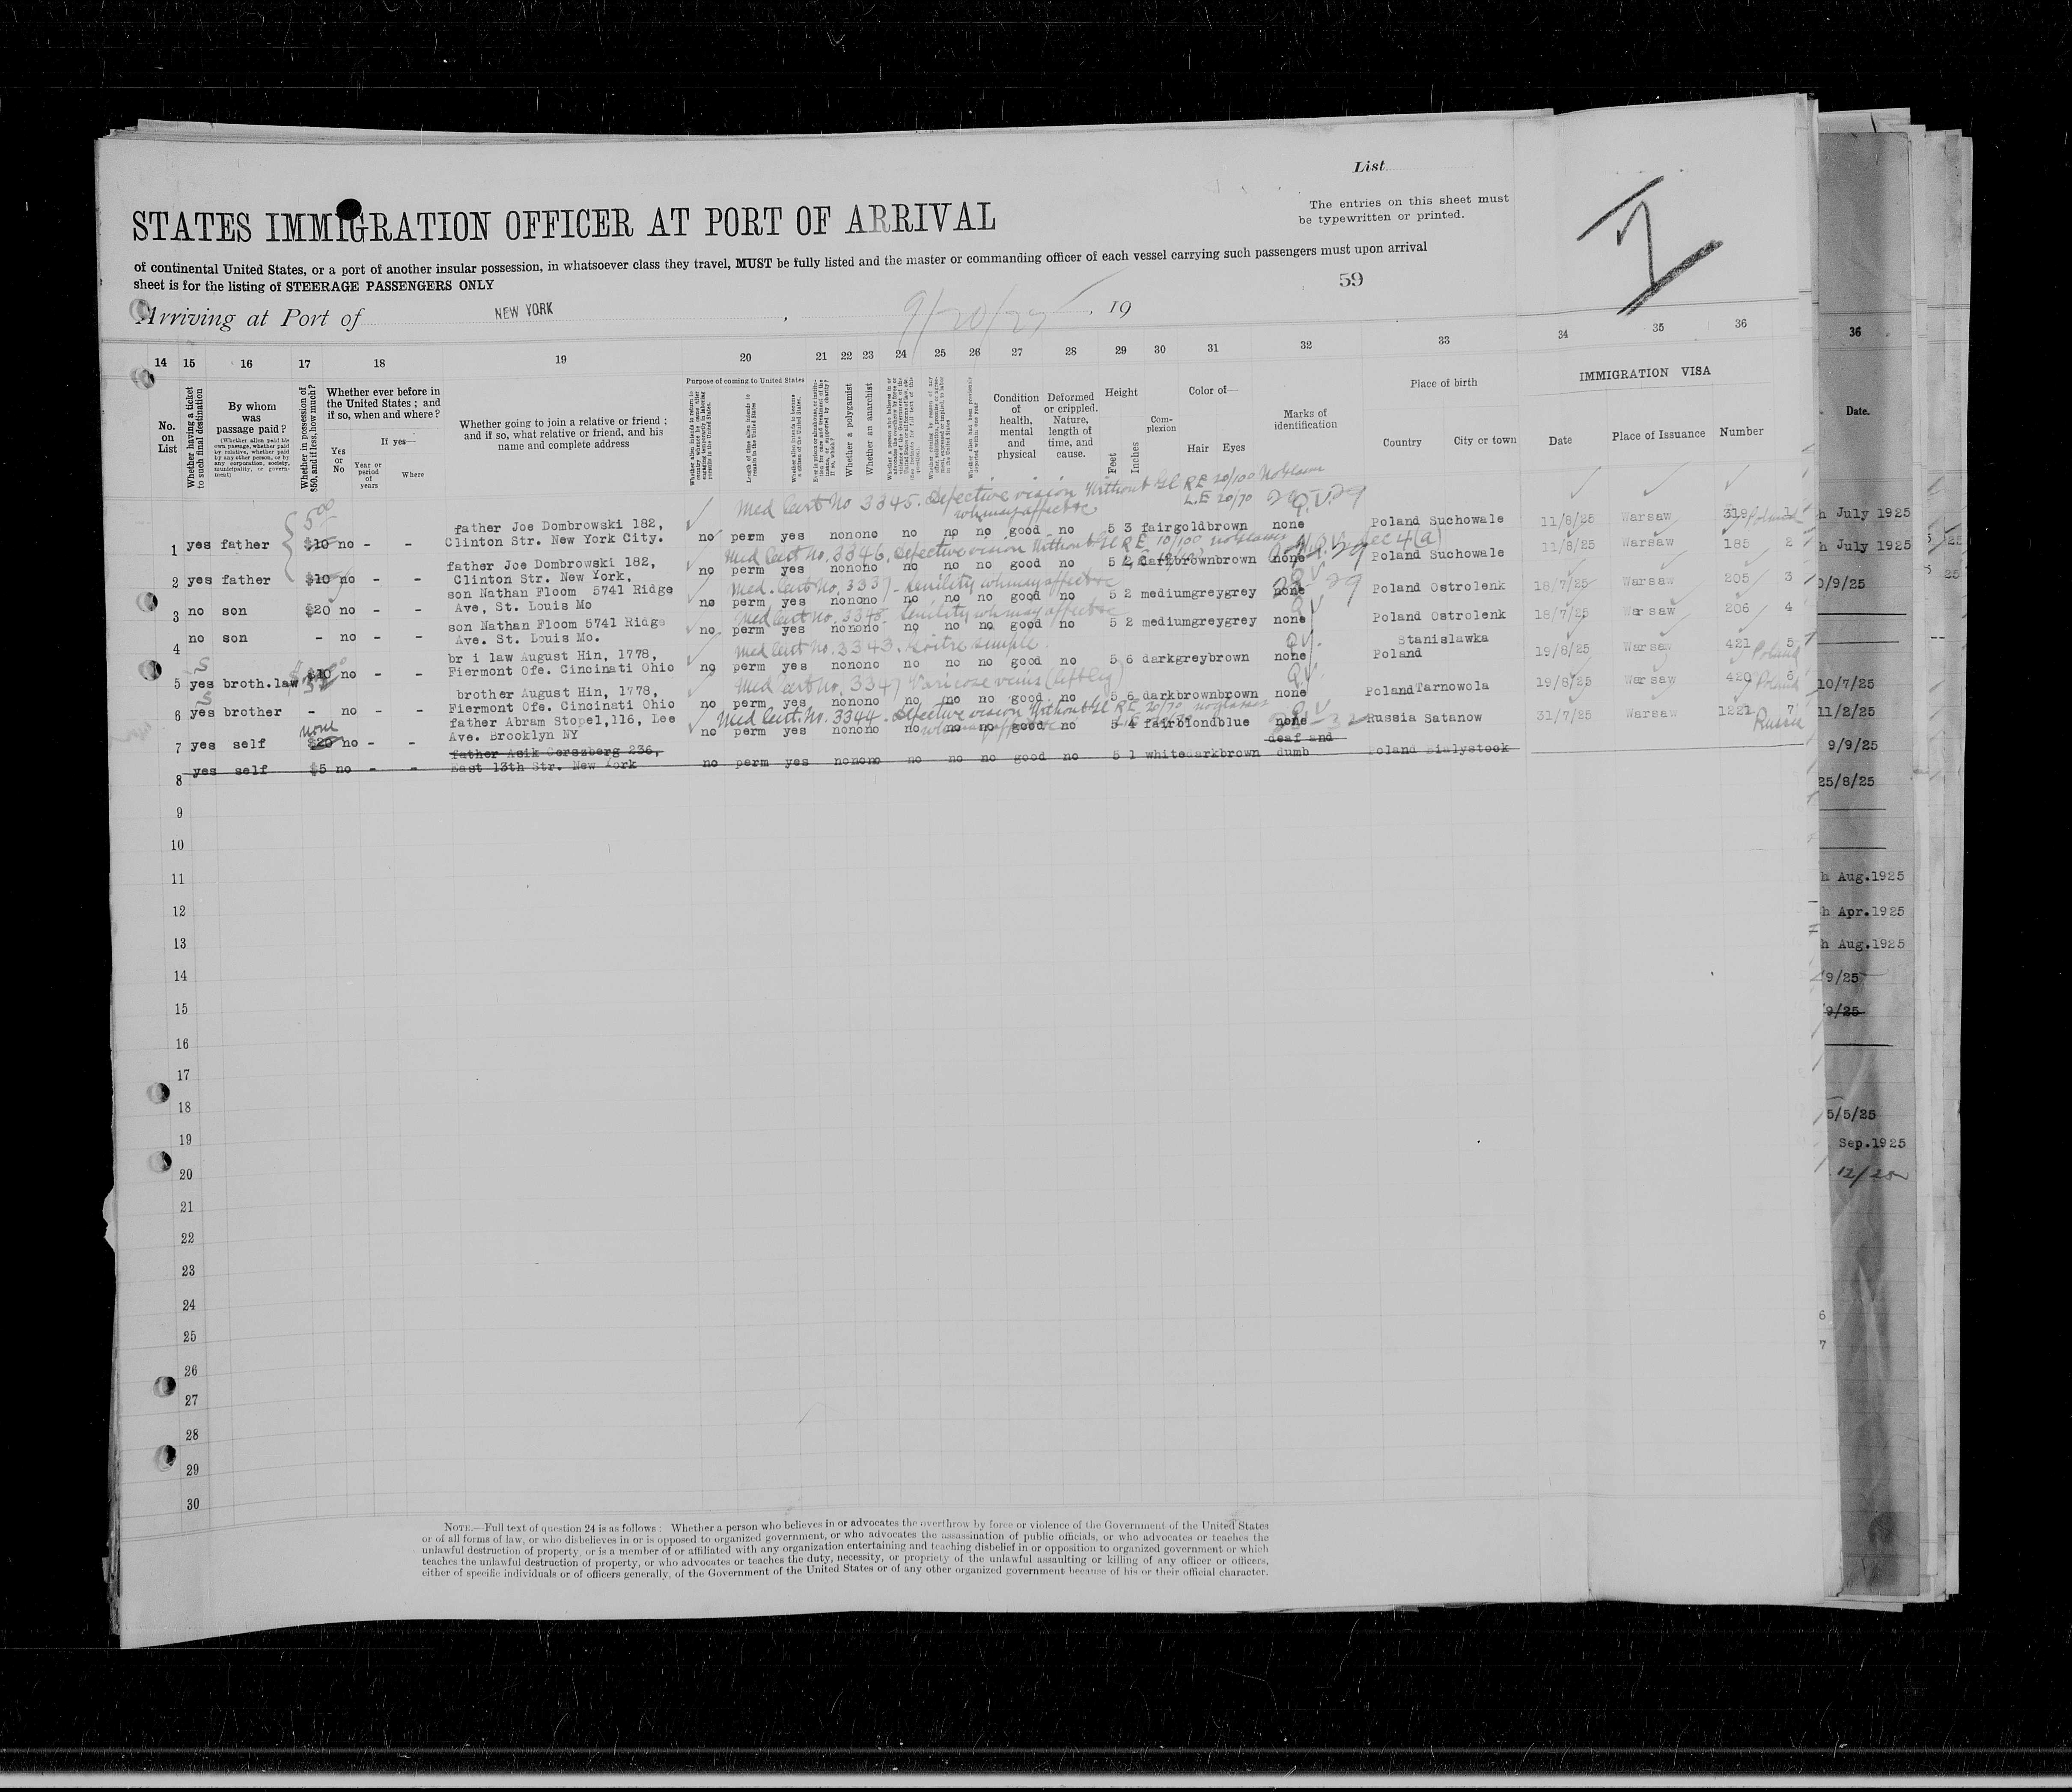 List
The entries on this sheet must
be typewritten or printed.
STATES IMMIGRATION OFFICER AT PORT OF ARRIVAL
of continental United States, or a port of another insular possession, in whatsoever class they travel, MUST be fully listed and the master or commanding officer of each vessel carrying such passengers must upon arrival
sheet is for the listing of STEERAGE PASSENGERS ONLY
59
Arriving at Port of NEW YORK , 19
14 15 16 17 18 19 20 21 22 23 24 25 26 27 28 29 30 31 32 33 34 35 36
No. on List
Whether having a ticket to such final destination
By whom was passage paid?
(Whether alien paid his own passage, whether paid by relative, whether paid by any other person, or by any corporation, society, municipality, or government)
Whether in possession of $50, and if less, how much?
Whether ever before in the United States; and if so, when and where?
Yes or No
If yes—
Year or period of years
Where
Whether going to join a relative or friend; and if so, what relative or friend, and his name and complete address
Purpose of coming to United States
Length of time alien intends to remain in the United States
Whether alien intends to become a citizen of the United States.
Whether a polygamist
Whether an anarchist
Condition of health, mental and physical
Deformed or crippled. Nature, length of time, and cause.
Height
Feet
Inches
Complexion
Color of—
Hair Eyes
Marks of identification
Place of birth
Country City or town
IMMIGRATION VISA
Date Place of Issuance Number
Med Cert No 3345. Defective vision Without Gl RE 20/100 No Glasses
LE 20/70
500
father Joe Dombrowski 182,
1 yes father $10 no - - Clinton Str. New York City. no perm yes no no no no no no good no 5 3 fair gold brown none Poland Suchowale 11/8/25 Warsaw 319 1
Med Cert No. 3346. Defective vision Without Gl RE 10/100 no glasses Sec 4(a)
father Joe Dombrowski 182,
2 yes father $10 no - - Clinton Str. New York, no perm yes no no no no no no good no 5 2 dark brown brown none Poland Suchowale 11/8/25 Warsaw 185 2
Med. Cert No. 3337 - Senility wh may affect
son Nathan Floom 5741 Ridge
3 no son $20 no - - Ave, St. Louis Mo no perm yes no no no no no no good no 5 2 medium grey grey none Poland Ostrolenk 18/7/25 Warsaw 205 3
Senility wh may affect
son Nathan Floom 5741 Ridge
4 no son - no - - Ave. St. Louis Mo. no perm yes no no no no no no good no 5 2 medium grey grey none Poland Ostrolenk 18/7/25 Warsaw 206 4
Med Cert No. 3343. Goitre simple.
br i law August Hin, 1778,
5 yes broth.law $10 no - - Fiermont Ofe. Cincinati Ohio no perm yes no no no no no no good no 5 6 dark grey brown none Poland Stanislawka 19/8/25 Warsaw 421 5 Poland
Med Cert No. 3347 Varicose veins (left leg)
brother August Hin, 1778,
6 yes brother - no - - Fiermont Ofe. Cincinati Ohio no perm yes no no no no no no good no 5 6 dark brown brown none Poland Tarnowola 19/8/25 Warsaw 420 6 Poland
Med Cert. No. 3344 - Defective vision Without Gl RE 20/70 no glasses
none
father Abram Stopel,116, Lee
7 yes self $20 no - - Ave. Brooklyn NY no perm yes no no no no no no good no 5 4 fair blond blue none Russia Satanow 31/7/25 Warsaw 1221 7 Russia
father Asik Gerszberg 236,
8 yes self $5 no - - East 13th Str. New York no perm yes no no no no no no good no 5 1 white dark brown deaf and dumb Poland Bialystock
9
10
11
12
13
14
15
16
17
18
19
20
21
22
23
24
25
26
27
28
29
30
NOTE.—Full text of question 24 is as follows: Whether a person who believes in or advocates the overthrow by force or violence of the Government of the United States
or of all forms of law, or who disbelieves in or is opposed to organized government, or who advocates the assassination of public officials, or who advocates or teaches the
unlawful destruction of property, or is a member of or affiliated with any organization entertaining and teaching disbelief in or opposition to organized government or which
teaches the unlawful destruction of property, or who advocates or teaches the duty, necessity, or propriety of the unlawful assaulting or killing of any officer or officers,
either of specific individuals or of officers generally, of the Government of the United States or of any other organized government because of his or their official character.
36
Date.
h July 1925
h July 1925
0/9/25
10/7/25
11/2/25
9/9/25
25/8/25
h Aug.1925
h Apr.1925
h Aug.1925
9/25
9/25
5/5/25
Sep.1925
12/25
6
7